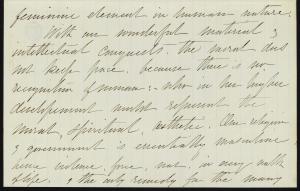 feminine element in human nature.
With our wonderful material &
intellectual conquests. the moral does
not keep pace, because there is no
recognition of woman:- who in her higher
development must represent the
moral, spiritual, esthetic. Our religion
& government is essentially masculine
hence violence, force, war, in every walk
of life. & the only remedy for the many